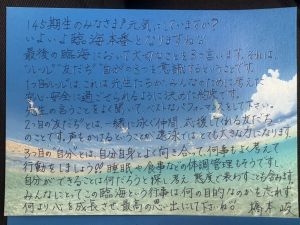 145期生のみなさま!元気にしていますか?
いよいよ臨海本番となりますね!!
最後の臨海において大切なことを3つ言います。それは、
"ルール" "友だち" "自分" の3つを意識するということです。
1つ目の"ルール"とは、先生たちがみんなのために考えた
安心・安全に過ごせられるように決めた約束です。
先生の言うことをよく聞いてベストなパフォーマンスをして下さい。
2つ目の"友だち"とは、一緒に泳ぐ仲間、応援してくれる友だち
のことです。声をかけるということが遠泳ではとても大きな力になります。
3つ目の"自分"とは、自分自身とよく向き合って何事もよく考えて
行動をしましょう!!睡眠や食事などの体調管理もそうですし、
自分ができることは何だろうと探し、考え、態度で表わすことも含みます。
みんなにとってこの臨海という行事は、何の目的なのかを忘れず、
何より心を成長させ最高の思い出にして下さいね!! 橋本